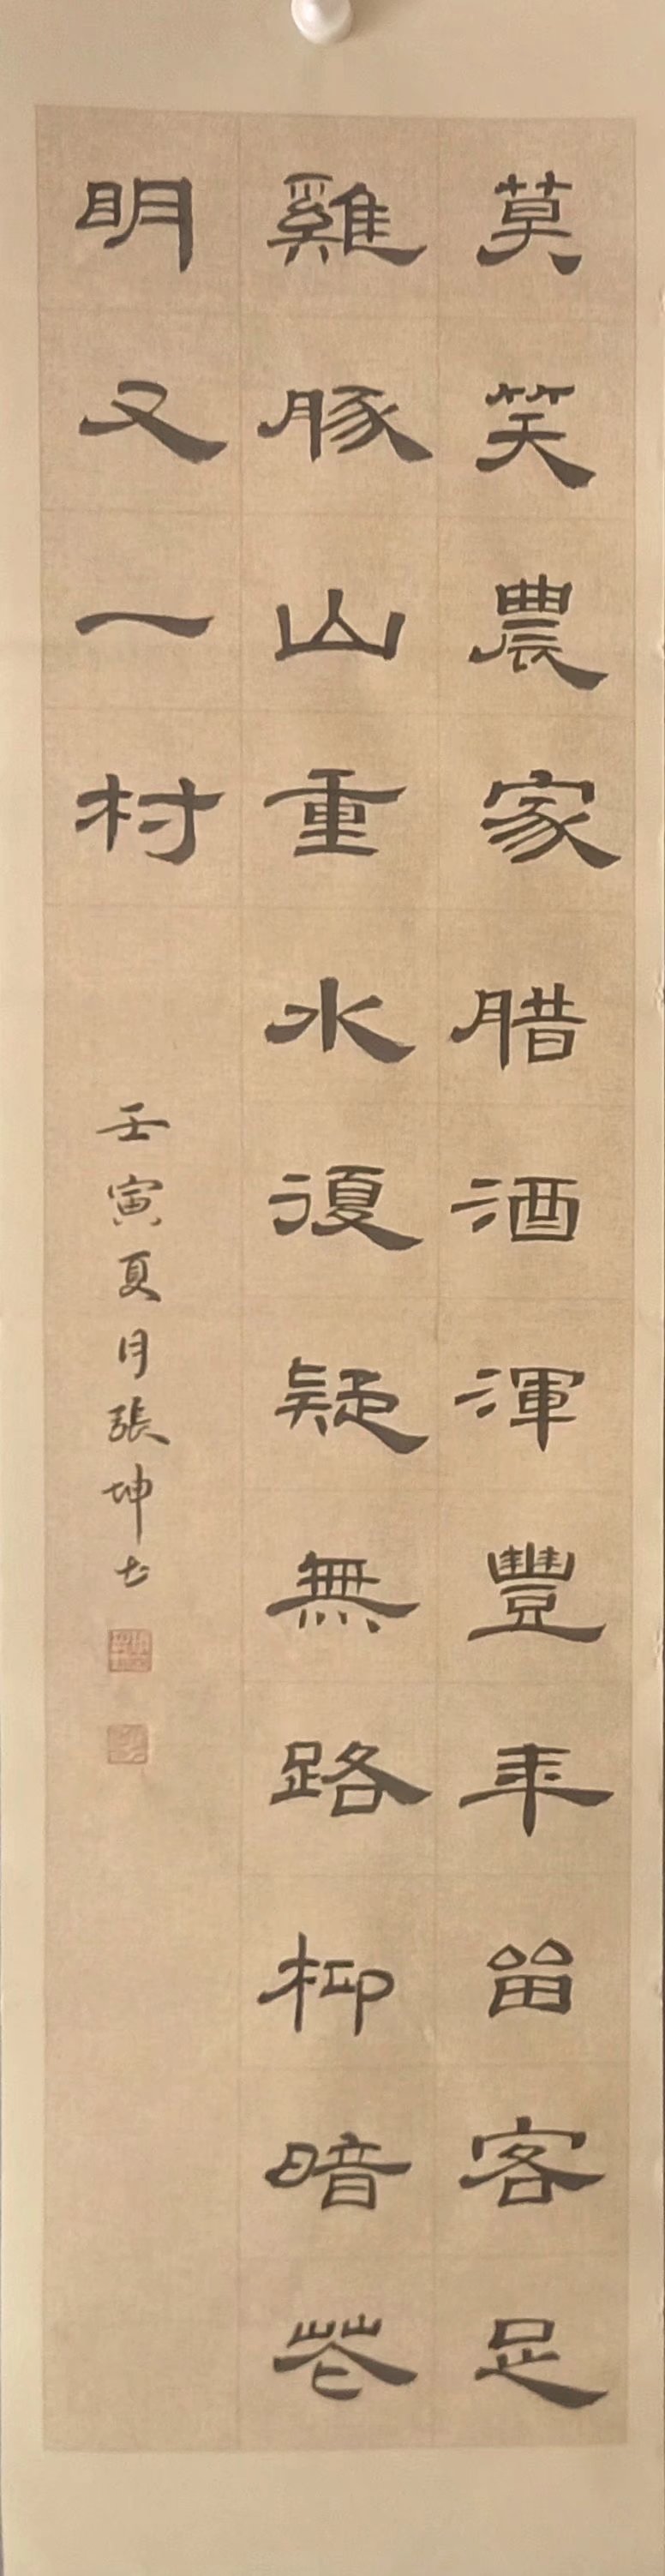 莫笑農家腊酒渾豐年畱客足
雞豚山重水復疑無路柳暗花
明又一村
壬寅夏月張坤书